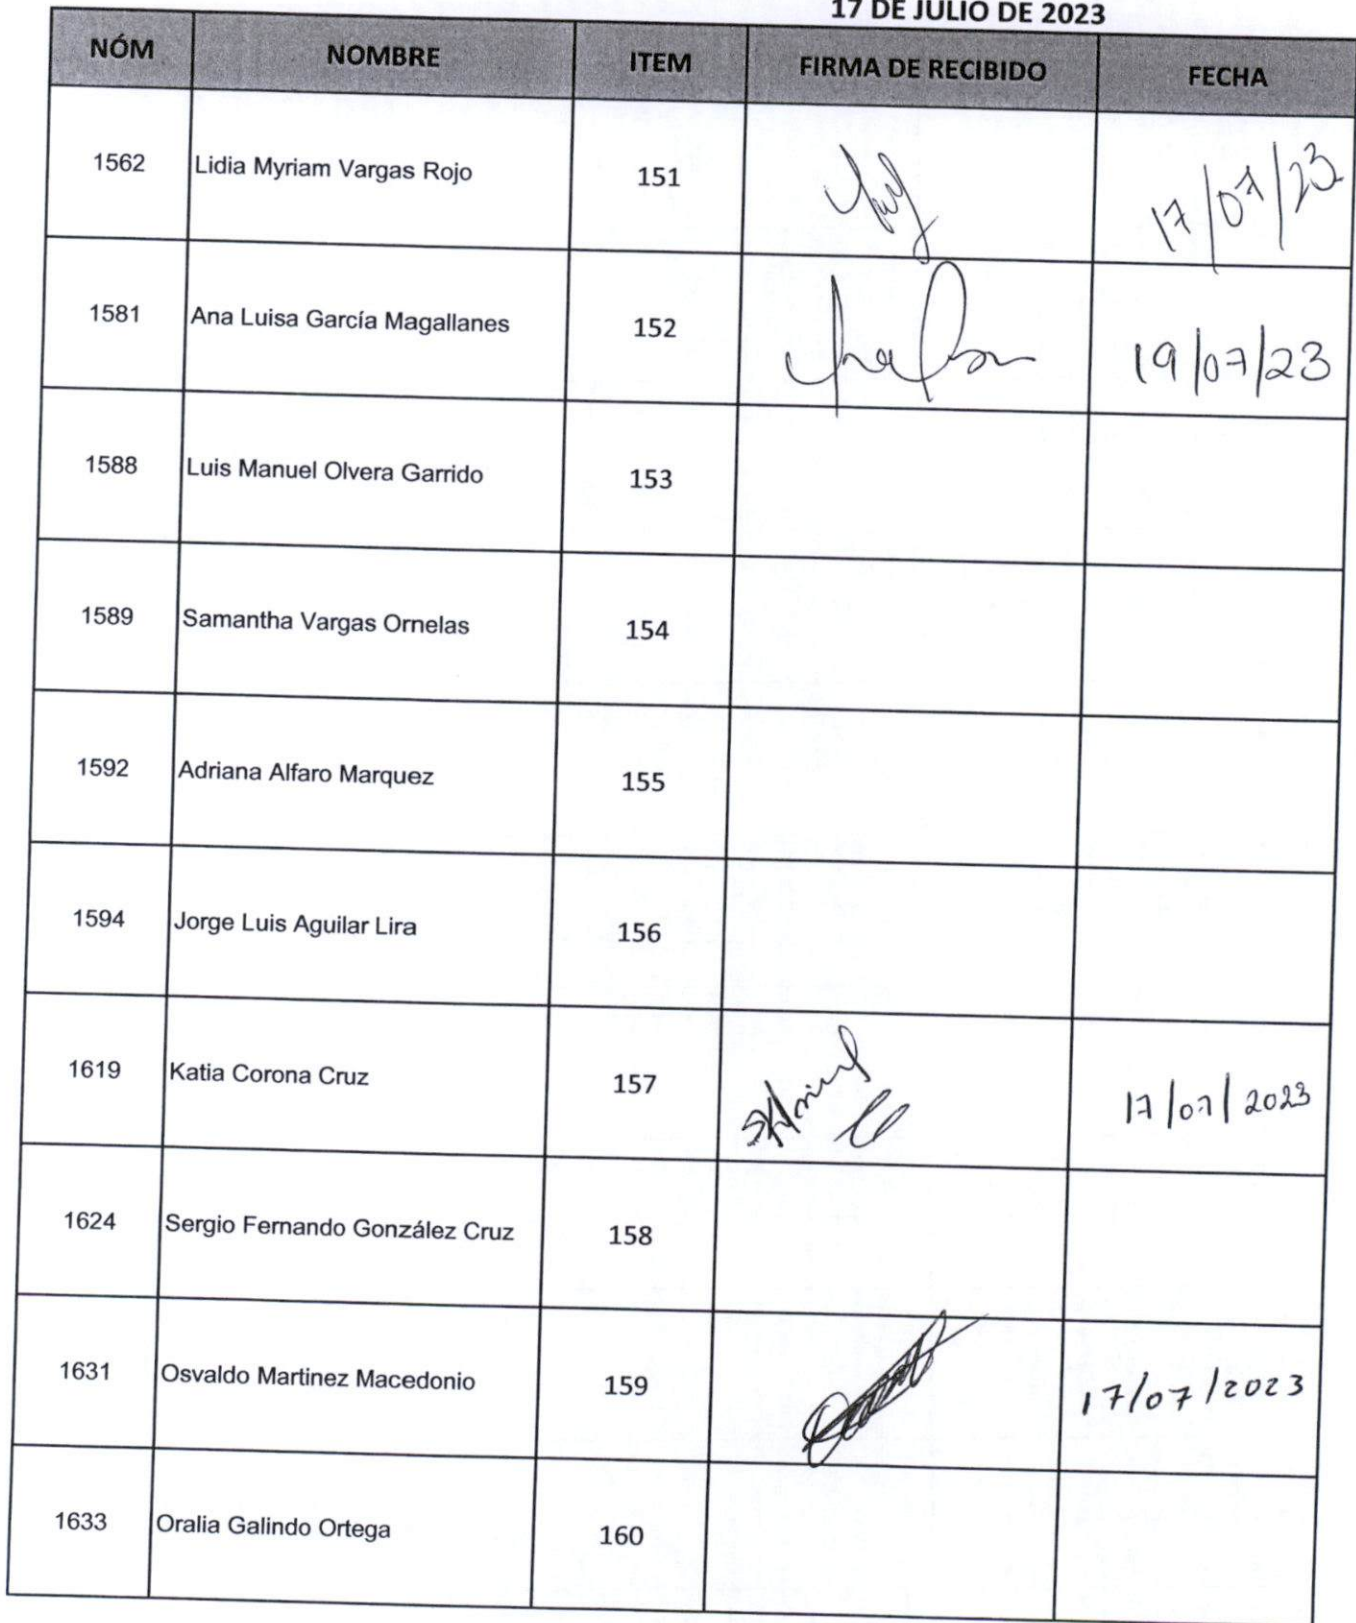 17 DE JULIO DE 2023
NÓM NOMBRE ITEM FIRMA DE RECIBIDO FECHA
1562 Lidia Myriam Vargas Rojo 151 17/07/23
1581 Ana Luisa García Magallanes 152 19/07/23
1588 Luis Manuel Olvera Garrido 153
1589 Samantha Vargas Ornelas 154
1592 Adriana Alfaro Marquez 155
1594 Jorge Luis Aguilar Lira 156
1619 Katia Corona Cruz 157 17/07/2023
1624 Sergio Fernando González Cruz 158
1631 Osvaldo Martinez Macedonio 159 17/07/2023
1633 Oralia Galindo Ortega 160